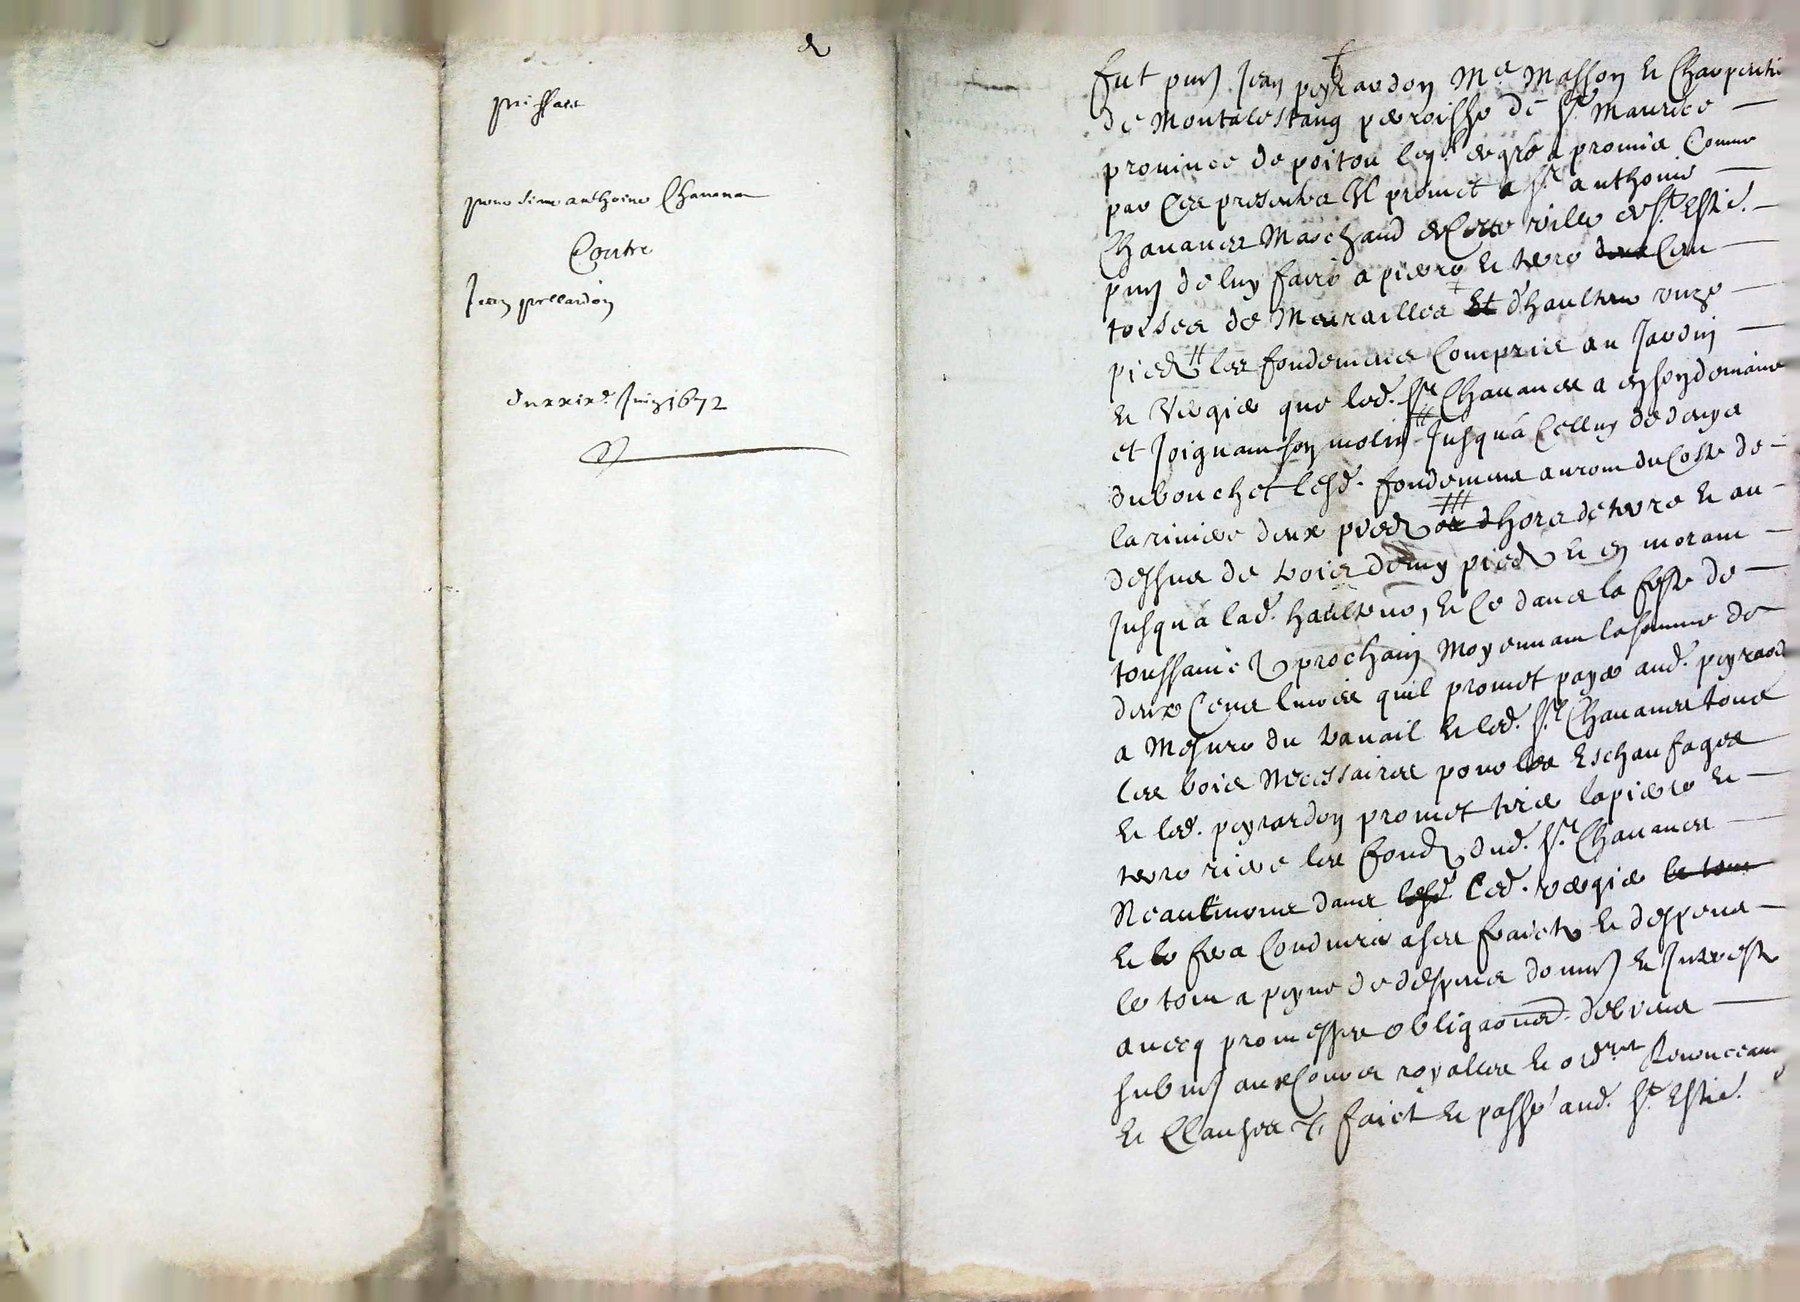 prisfaict
pour sieur anthoine Chavana
Contre
Jean pellardon
du xxix.e Juin 1672
fut pnt Jean peyrardon M.e Masson et Charpentie
de Montalestang parroisse de St Maurice
province de poitou leql de gré a promis Comme
par Ces presentes Il promet a Sr anthoine
Chavanes Marchand de Cette ville de St Estie.
pnt de luy faire a pierre et terre Cen
toises de Murailles Et d'haulteur unze
pieds # les fondemens Compris au Jardin
et Vergie que led. Sr Chavanes a en son domaine
et Joignant son molin # Jusqu'a Celluy de Denys
dubouchet lesd. fondemens auront du Coste de
la riviere deux pieds dhors de terre et au
dessus de trois demy pieds et en morant
Jusqu'a lad. haulteur, et Ce dans la feste de
toussainctz prochain Moyennant la somme de
deux Cens livres quil promet paye aud. peyrard
a Mesure du travail et led. Sr Chavanes tous
les bois Necessaires pour les Eschaufages
et led. peyrardon promet tire la pierre et
terre riere les fonds dud. Sr Chavanes
Neantmoins dans led. vergie le tout
et le fera Conduire a ses fraictz et despens
le tout a peyne de despens doms et Interest
avecq promesses obligaons de biens
submis aux Cours royalles et ord.res Renonceans
et Clauses &. faict et passé aud. St Estie.